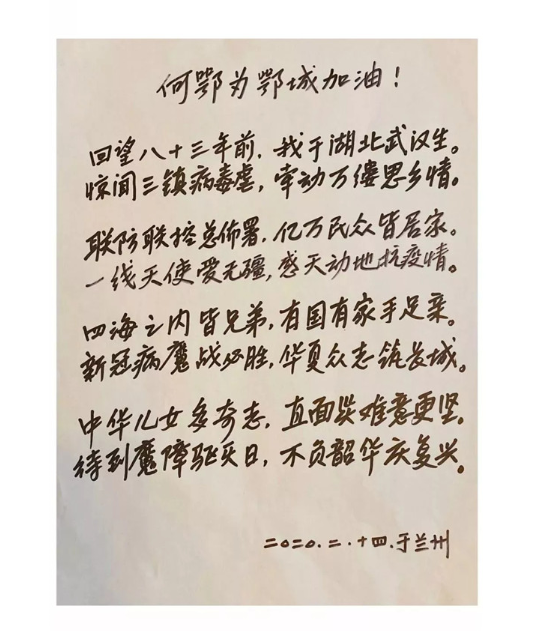 何鄂为鄂城加油！
回望八十三年前，我于湖北武汉生。
惊闻三镇病毒虐，牵动万缕思乡情。
联防联控总佈署，亿万民众皆居家。
一线天使爱无疆，感天动地抗疫情。
四海之内皆兄弟，有国有家手足亲。
新冠病魔战必胜，华夏众志筑长城。
中华儿女多奇志，直面灾难意更坚。
待到魔障驱灭日，不负韶华庆复兴。
二〇二〇.二.十四.于兰州